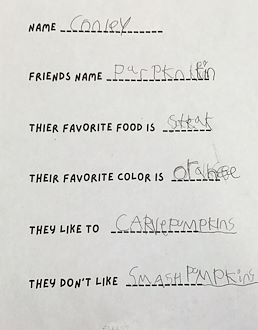 NAME Conley
FRIENDS NAME PurPkntkin
THIER FAVORITE FOOD IS Steak
THEIR FAVORITE COLOR IS orange
THEY LIKE TO CARVE PUMPKINS
THEY DON'T LIKE SMASH PUMPKINS